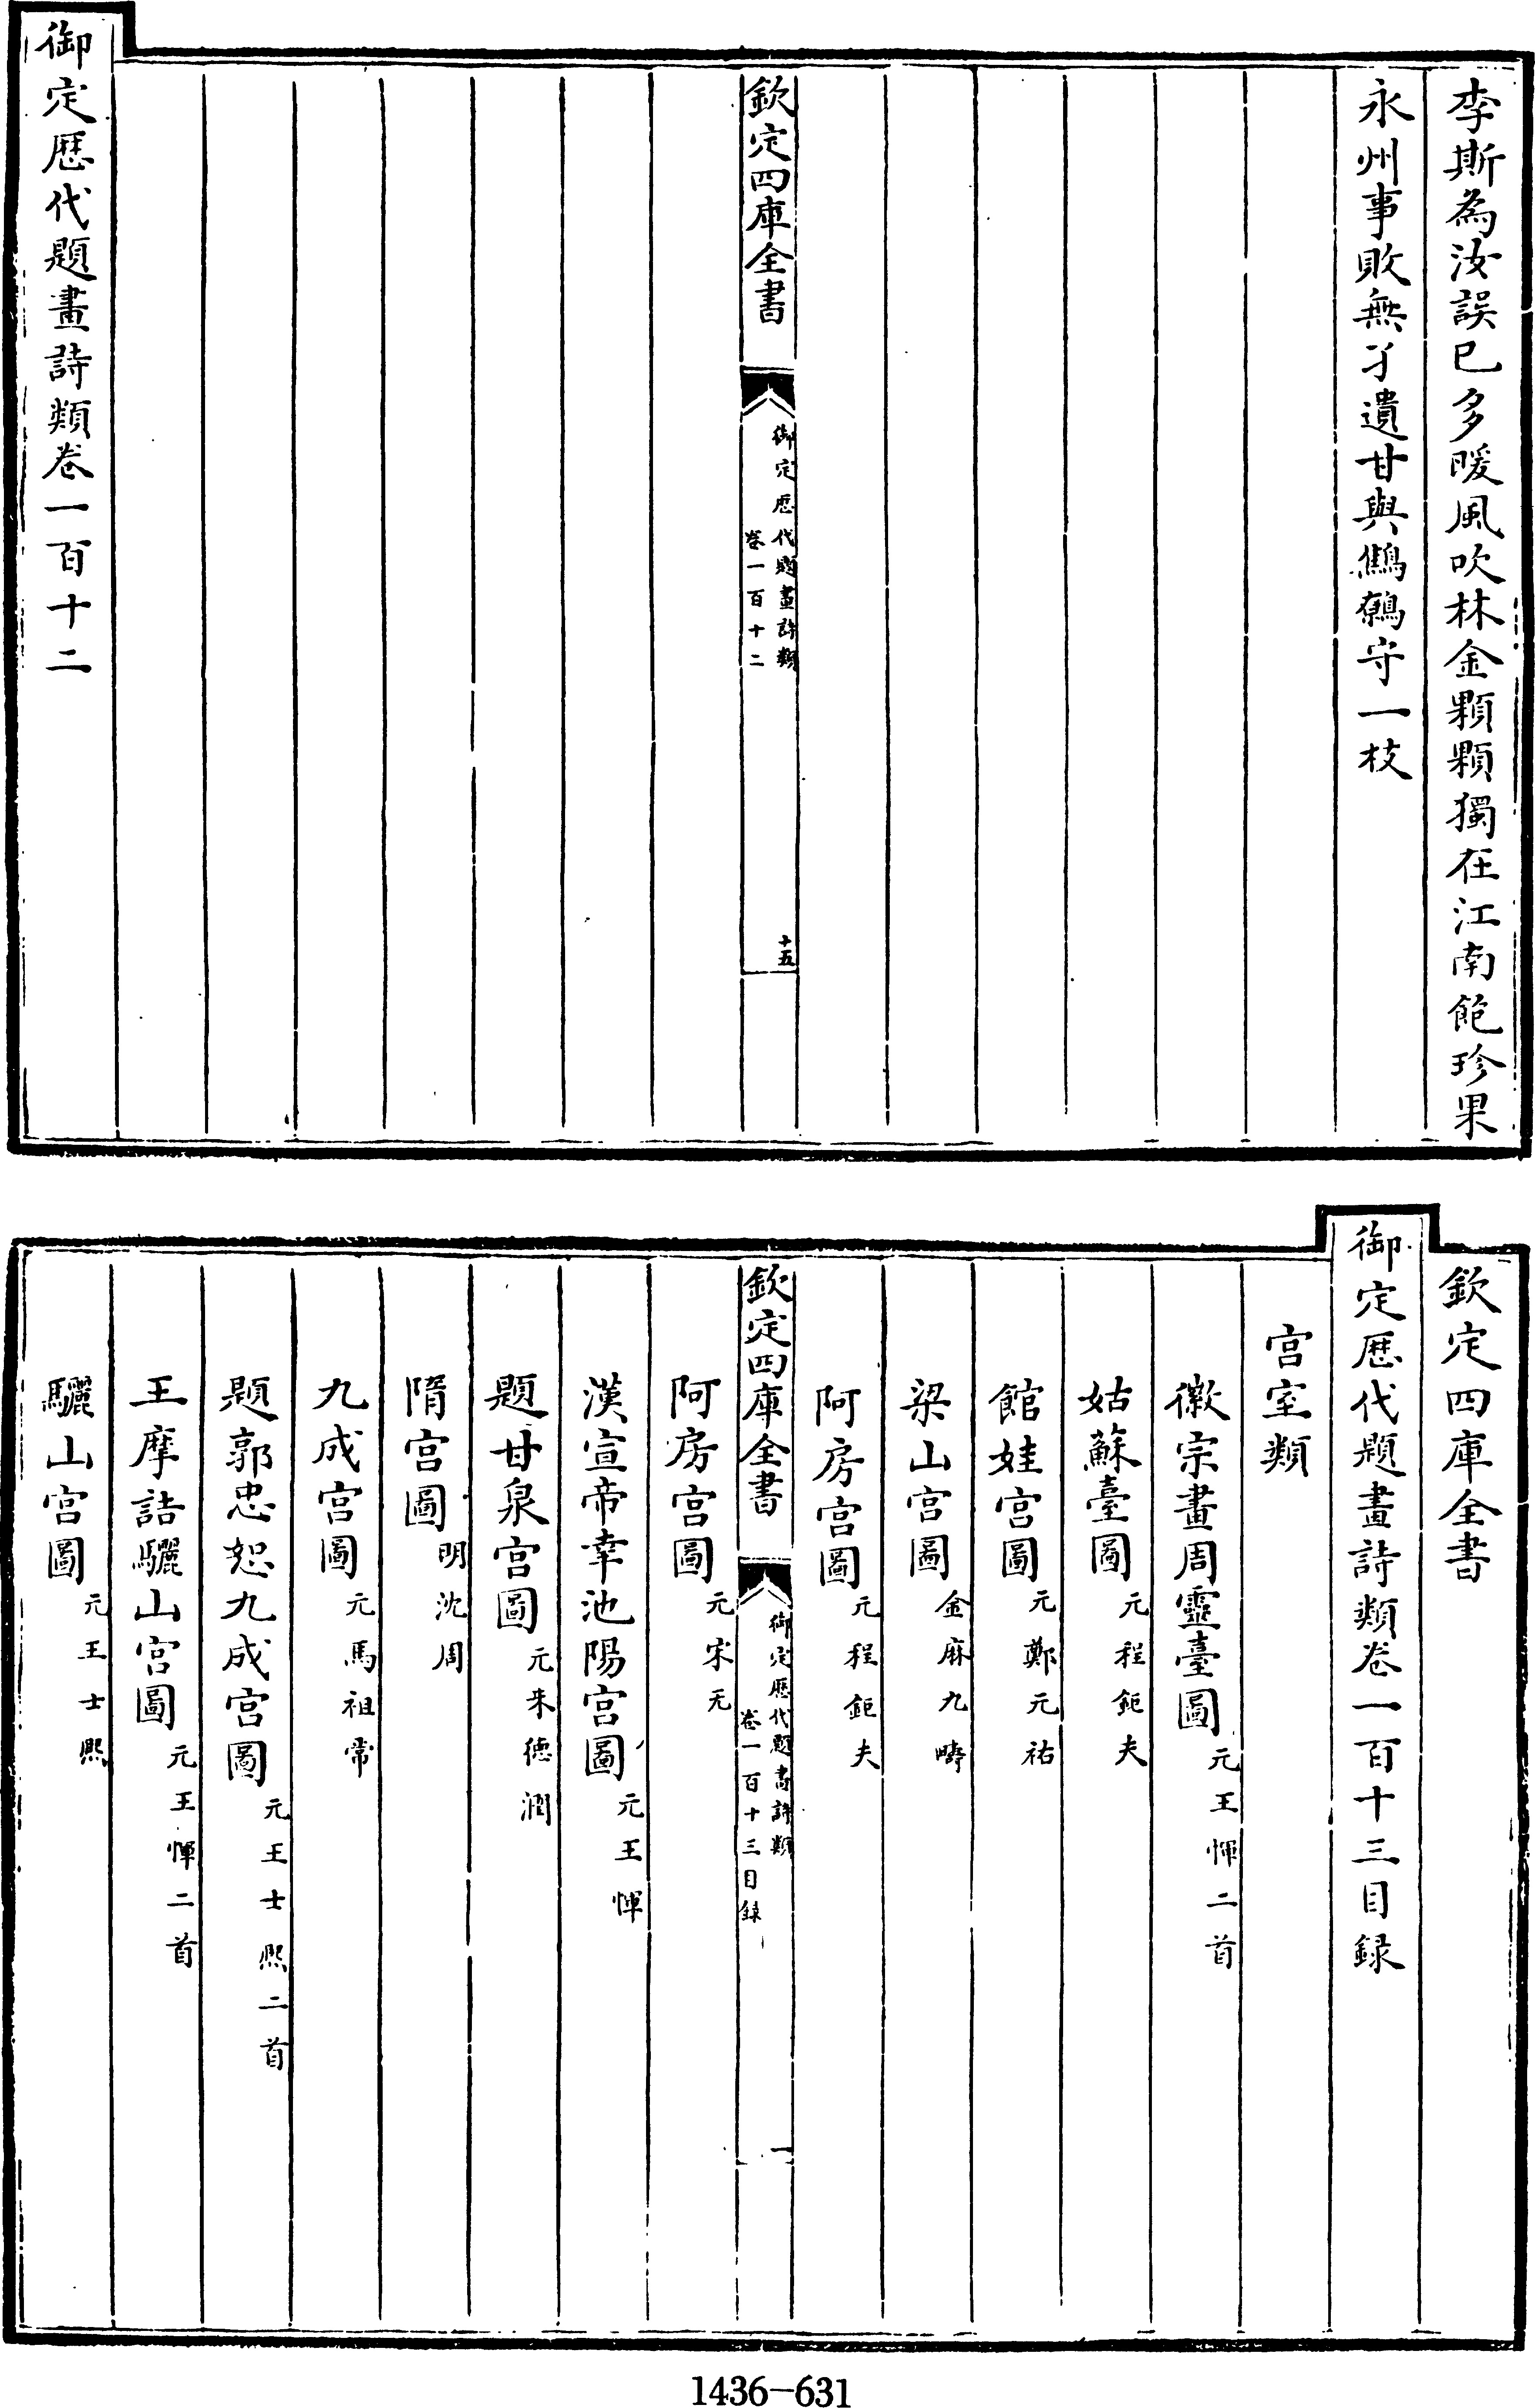 李斯為汝誤已多暖風吹林金顆顆獨在江南飽珍果
永州事敗無孑遺甘與鷦鷯守一枝
欽定四庫全書
御定歷代題畫詩類
卷一百十二
十五
御定歷代題畫詩類卷一百十二
欽定四庫全書
御定歷代題畫詩類卷一百十三目録
宫室類
徽宗畫周靈臺圖 元王惲二首
姑蘇臺圖 元程鉅夫
館娃宫圖 元鄭元祐
梁山宫圖 金麻九疇
阿房宫圖 元程鉅夫
欽定四庫全書
御定歷代題畫詩類
卷一百十三目録
一
阿房宫圖 元宋无
漢宣帝幸池陽宫圖 元王惲
題甘泉宫圖 元朱德潤
隋宫圖 明沈周
九成宫圖 元馬祖常
題郭忠恕九成宫圖 元王士熈二首
王摩詰驪山宫圖 元王惲二首
驪山宫圖 元王士熈
1436-631